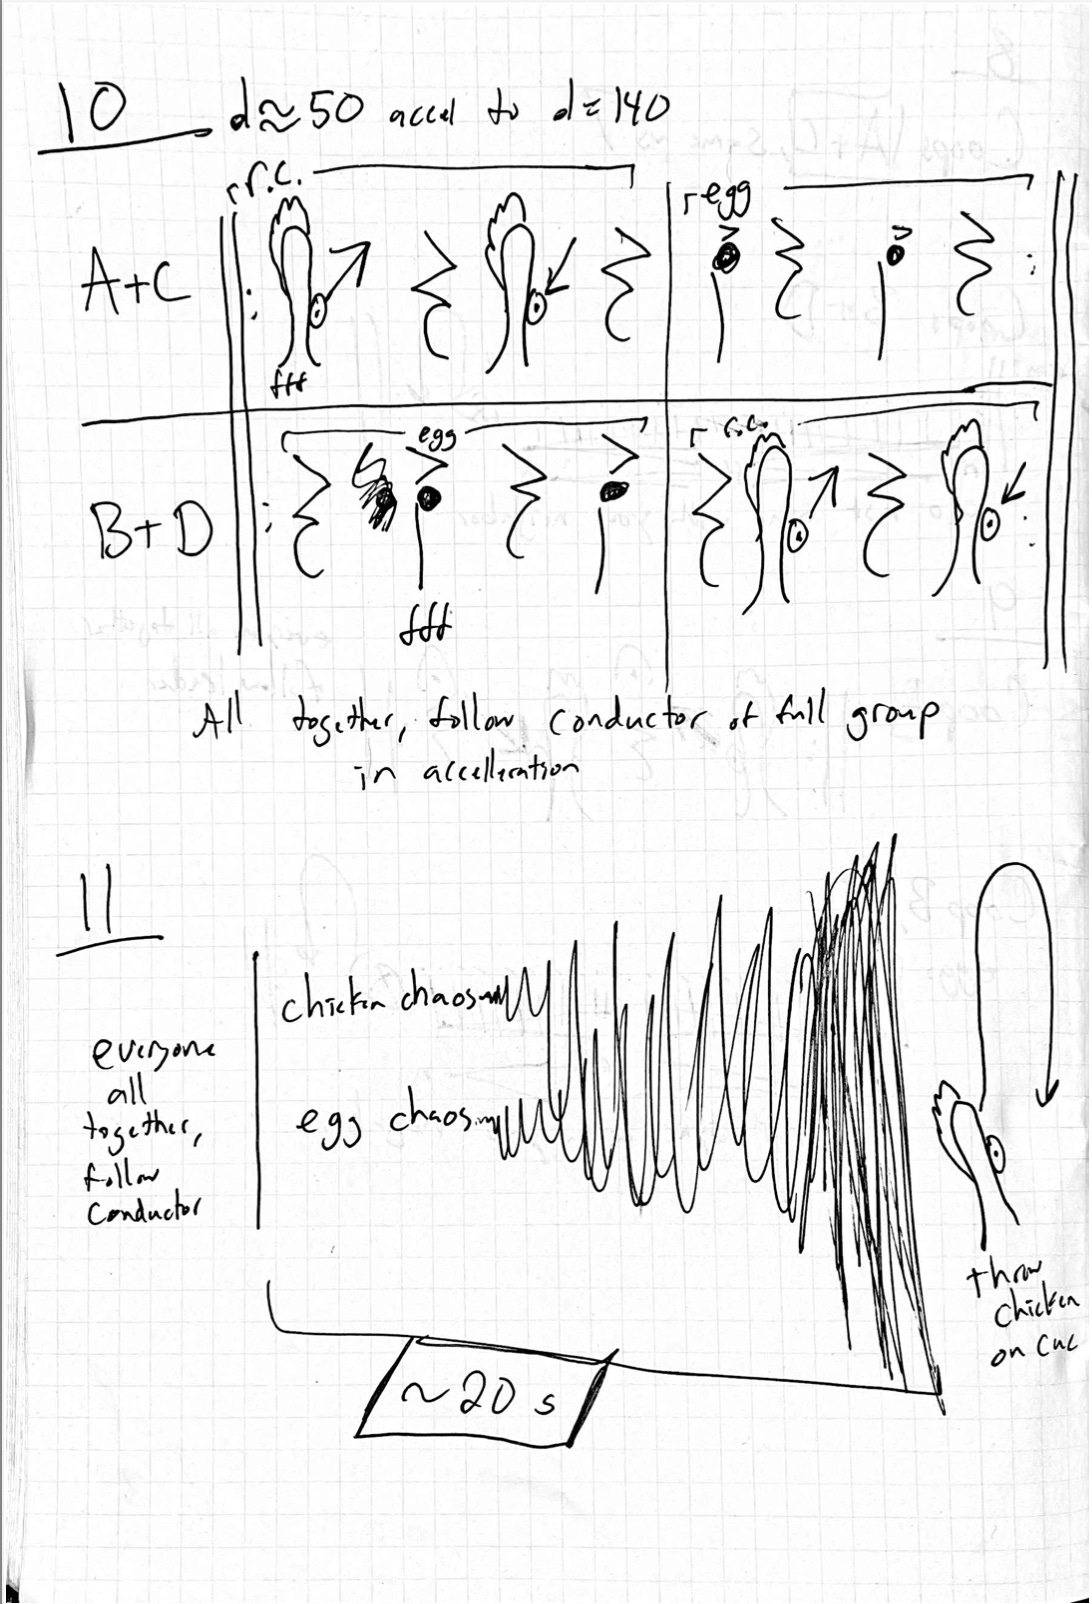 10 d≈50 accel to d=140
r.c.
egg
A+C
fff
egg
r.c.
B+D
fff
All together, follow conductor of full group
in accelleration
11
chicken chaos
everyone
all
together,
follow
conductor
egg chaos
throw
chicken
on cue
~20 s